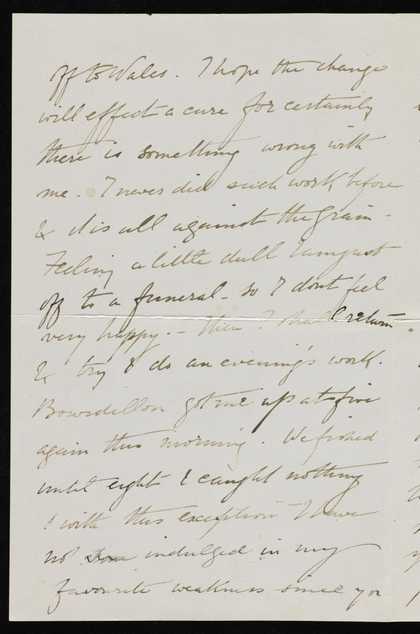 off to Wales. I hope the change
will effect a cure for certainly
there is something wrong with
me. I never did such work before
& it is all against the grain -
Feeling a little dull I am just
off to a funeral - so I dont feel
very happy. - then I shall return
& try & do an evening's work.
Bourdillon got me up at five
again this morning. We fished
until eight & caught nothing
! with this exception I have
not indulged in my
favourite weakness since you